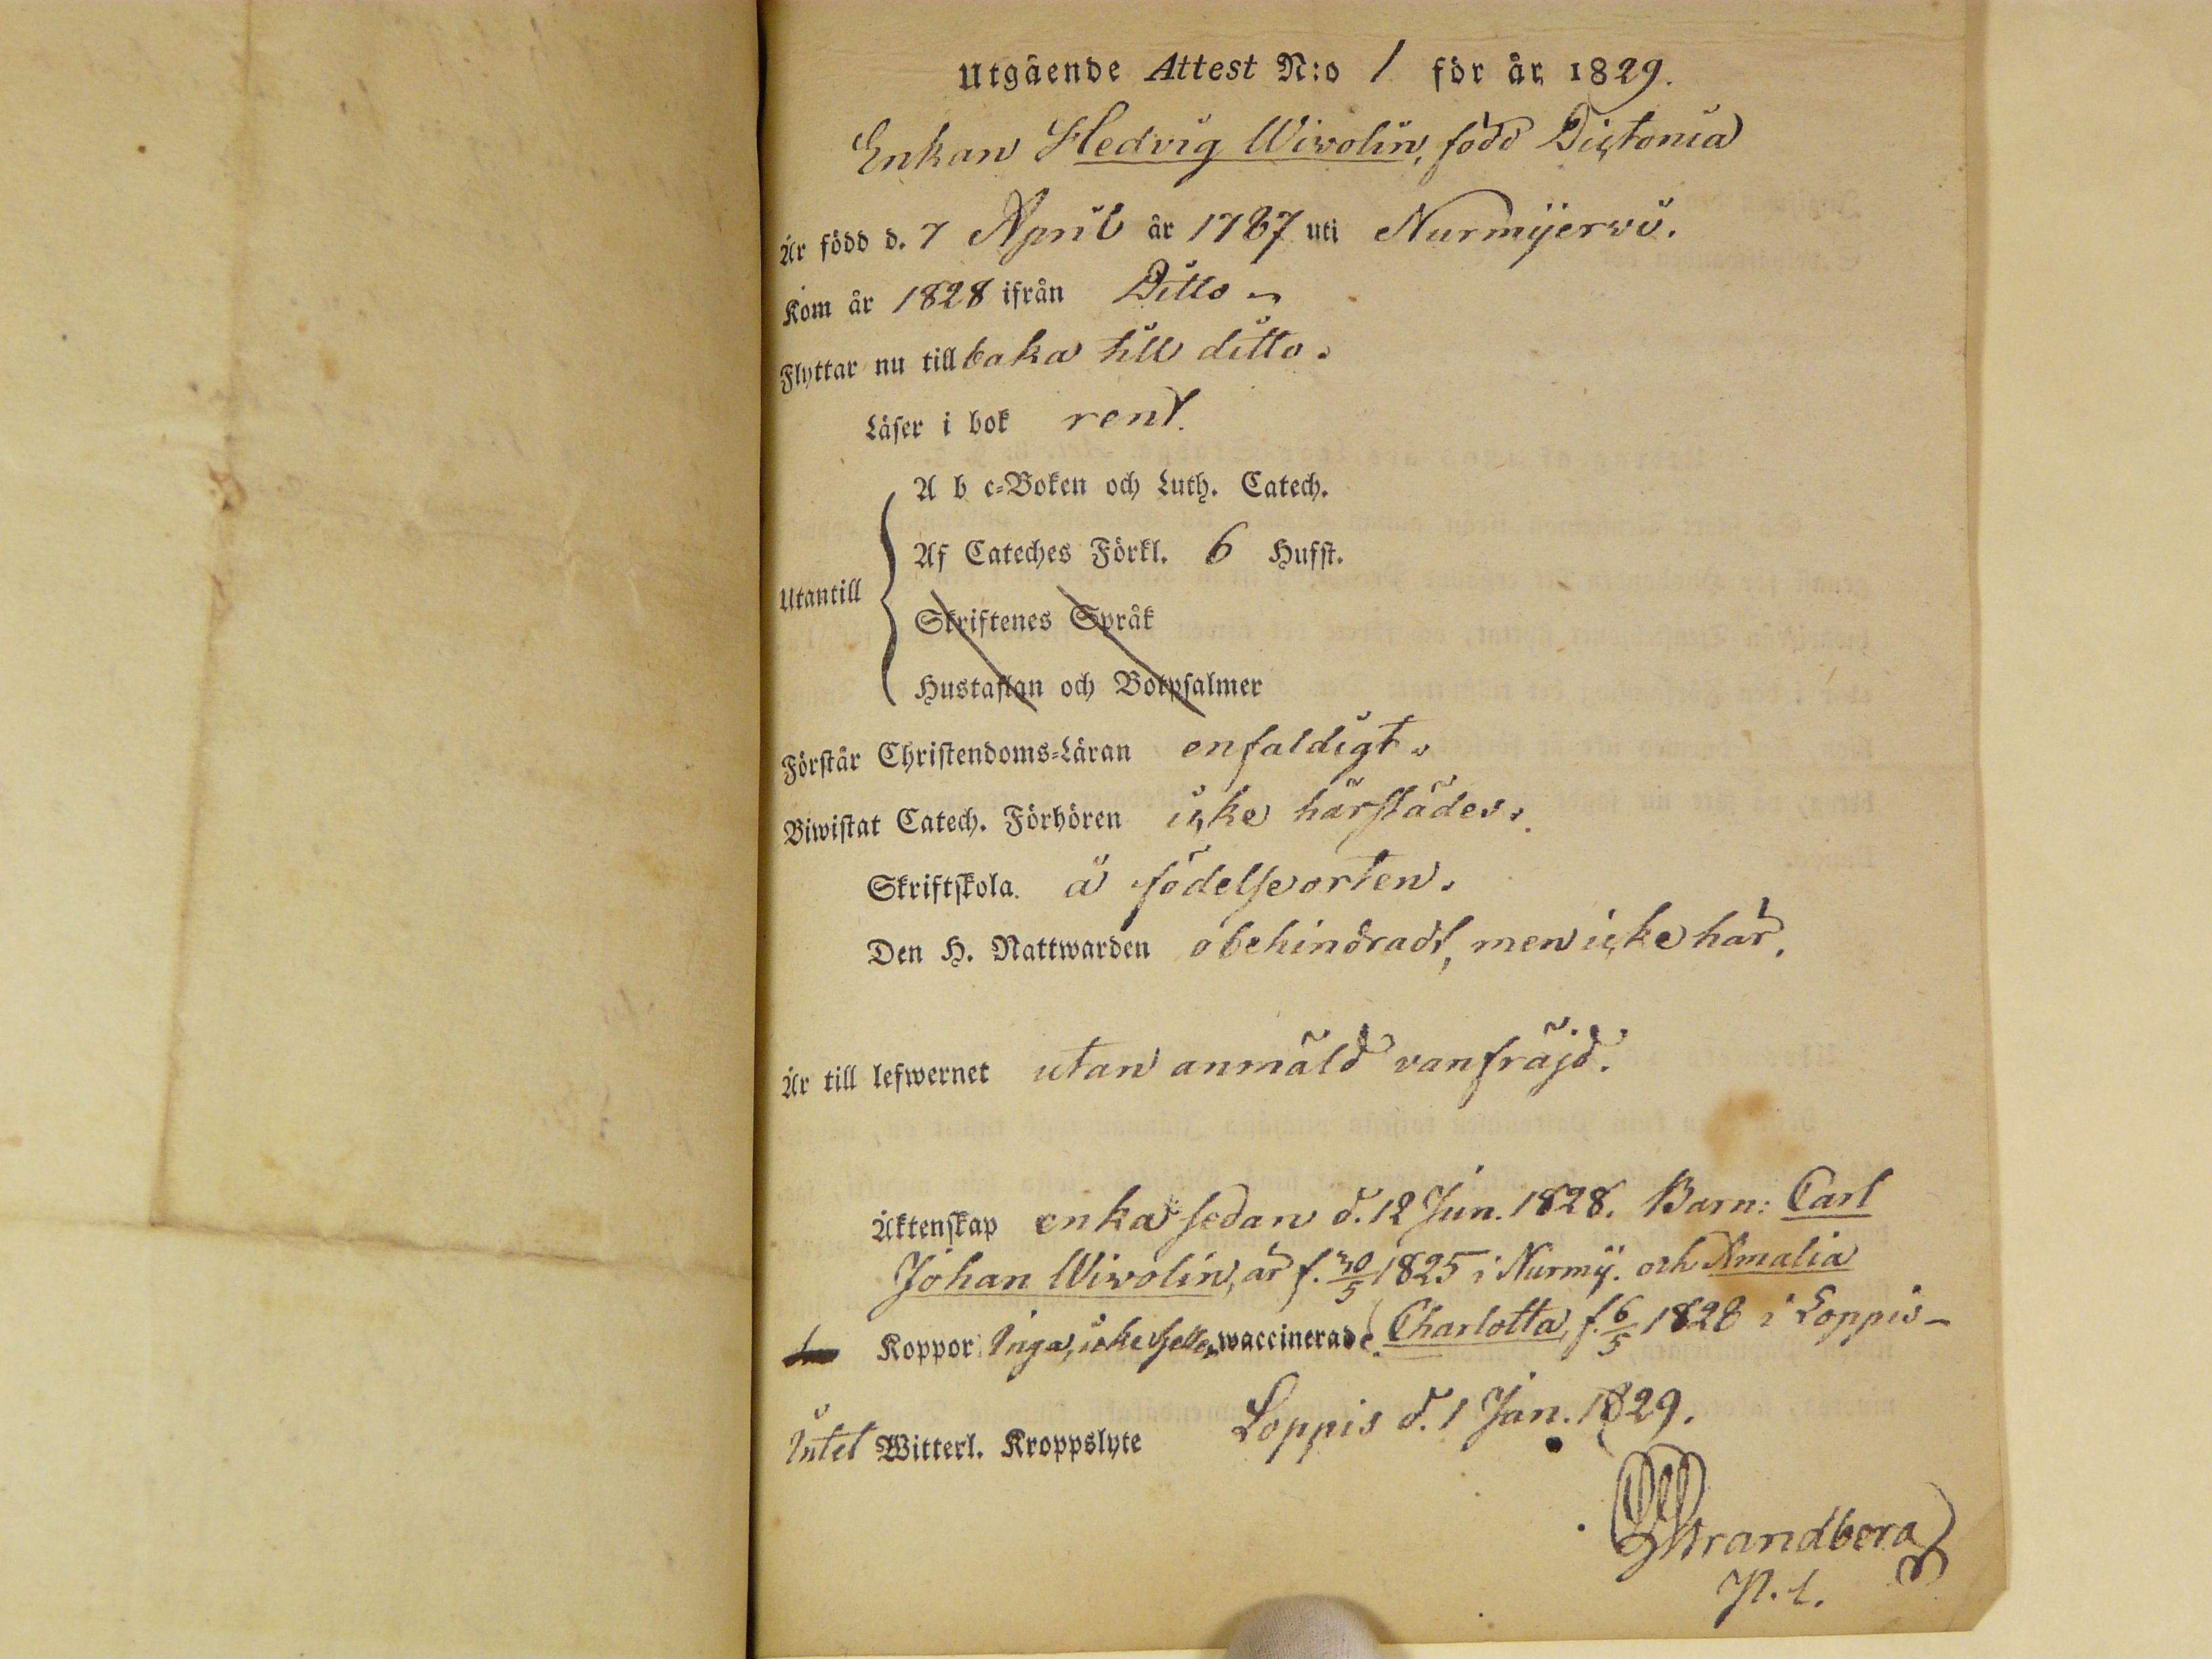 Utgående Attest N:o 1 för år 1829.
Enkan Hedvig Wivolin, född Dictonia
Är född d. 7 April år 1787 uti Nurmijervi.
Kom år 1828 ifrån Ditto
Flyttar nu tillbaka till ditto.
Läser i bok rent.
A b c-Boken och Luth. Catech.
Af Cateches Förkl. 6 Hufst.
Utantill
Skriftenes Språk
Hustaflan och Botpsalmer
Förstår Christendoms-Läran enfaldigt.
Biwistat Catech. Förhören icke härstädes.
Skriftskola. å födelseorten.
Den H. Nattwarden obehindradt, men icke här.
Är till lefwernet utan anmäld vanfräjd.
Äktenskap enka sedan d. 12 Jun. 1828. Barn: Carl
Johan Wivolin, är f. 30/5 1825 i Nurmij. och Amalia
Koppor Inga, icke heller waccinerade. Charlotta, f. 6/5 1828 i Loppis
Intet Witterl. Kroppslyte Loppis d. 1 Jan. 1829.
Strandberg